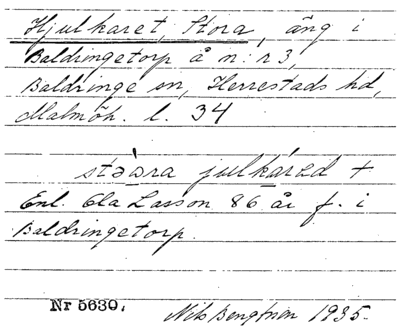 Hjulkaret, Stora, äng i
Baldringetorp å n:r 3,
Baldringe sn, Herrestads hd,
Malmöh. l. 34
stǝ̀ɑra julkárǝd +
Enl. Ola Larsson 86 år f. i
Baldringetorp.
Nr 5630.
Nils Bengtsson 1935.